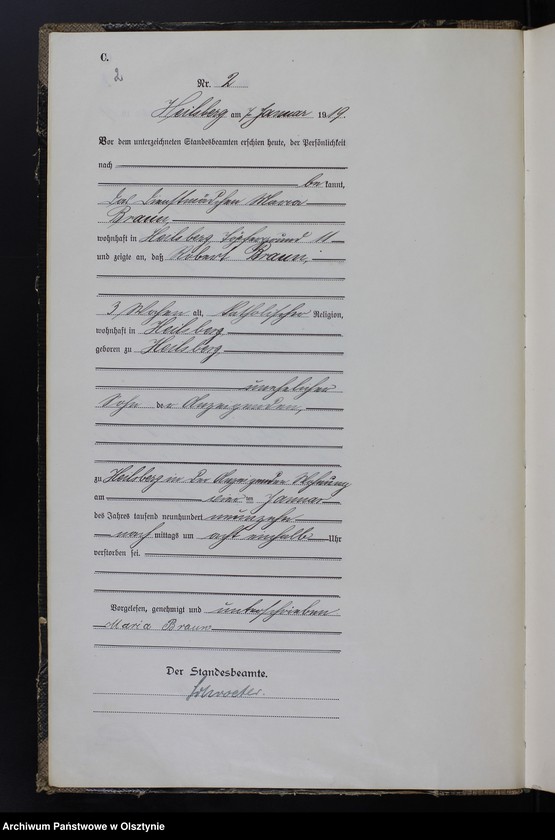 C.
2
Nr. 2
Heilsberg am 7. Januar 1919.
Vor dem unterzeichneten Standesbeamten erschien heute, der Persönlichkeit
nach
be kannt,
das Dienstmädchen Maria
Braun,
wohnhaft in Heilsberg, Töpfergrund 11
und zeigte an, daß Robert Braun,
3 Wochen alt, katholischer Religion,
wohnhaft in Heilsberg
geboren zu Heilsberg
unehelicher
Sohn der Anzeigenden,
zu Heilsberg in der Anzeigenden Wohnung
am vier ten Januar
des Jahres tausend neunhundert neunzehn
nach mittags um acht einhalb Uhr
verstorben sei.
Vorgelesen, genehmigt und unterschrieben
Maria Braun
Der Standesbeamte.
Archiwum Państwowe w Olsztynie